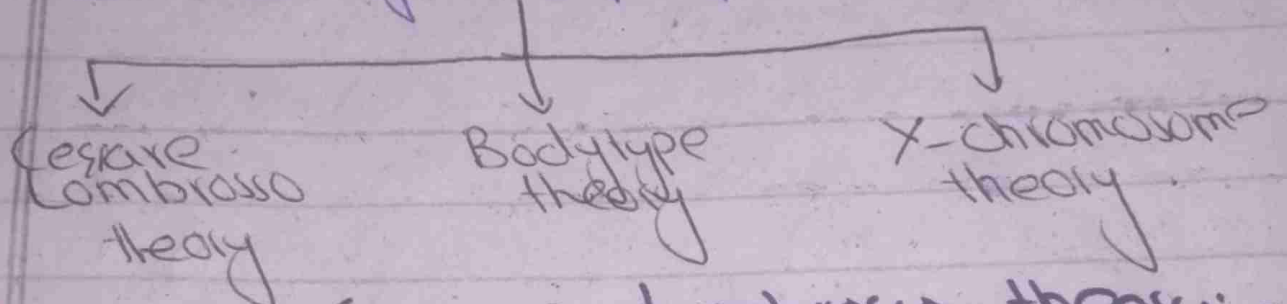 Cesrare
Lombrosso
theory
Bodytype
theory
X-chromosome
theory.
theory